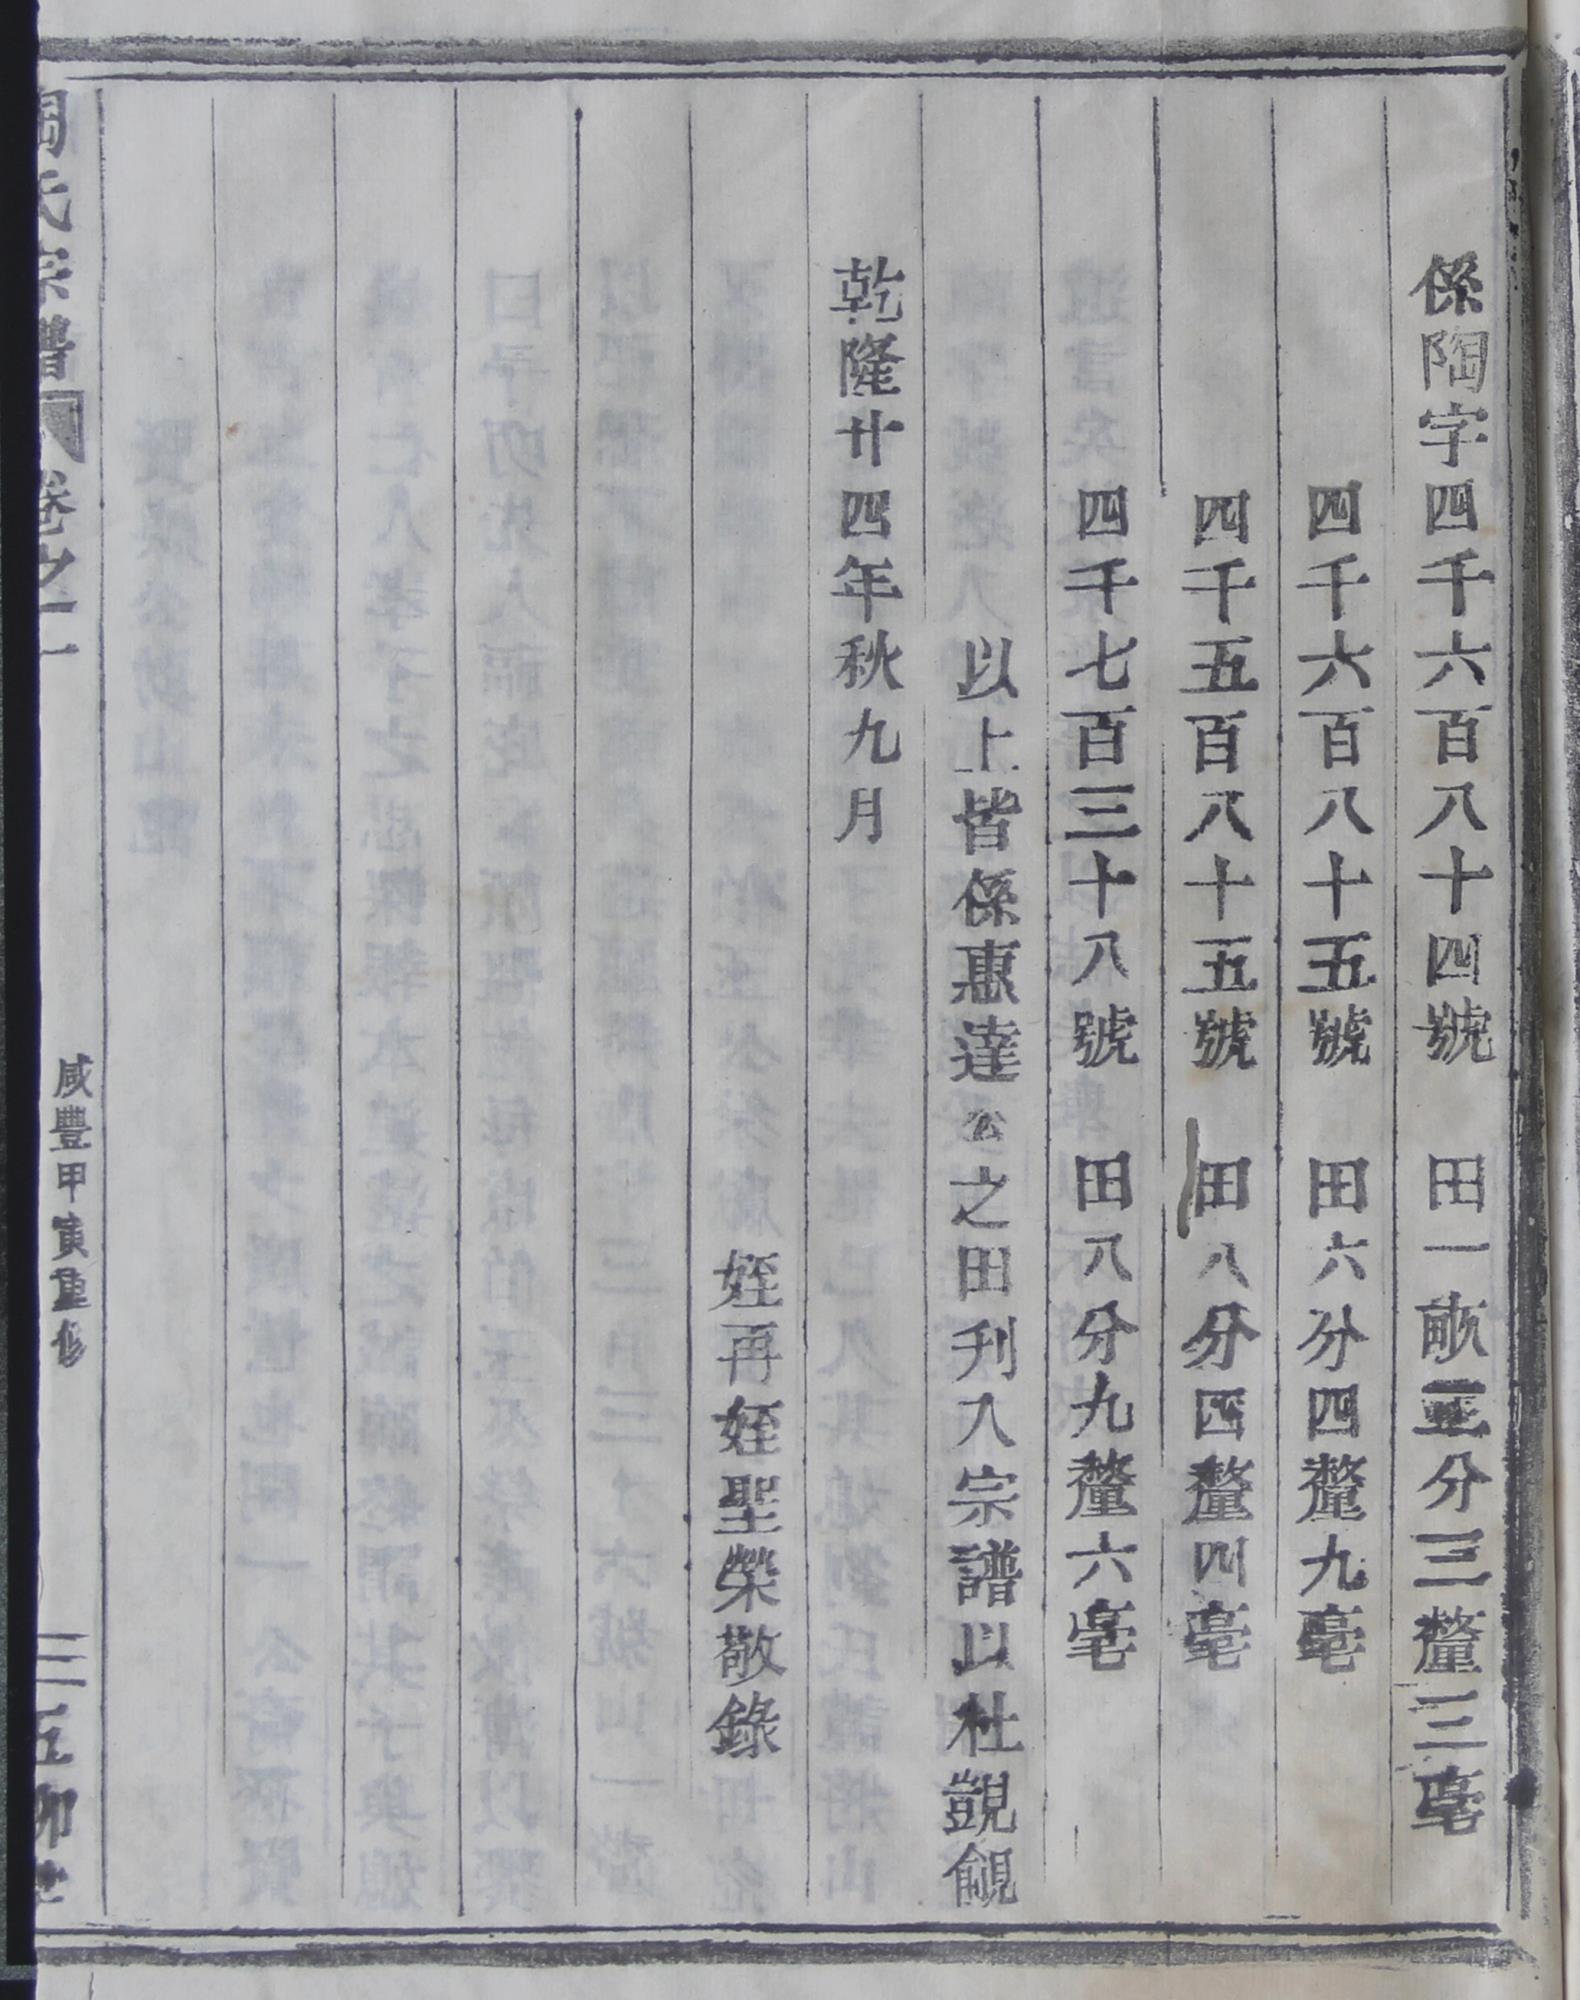 係陶字四千六百八十四號　田一畝五分三釐三毫
四千六百八十五號　田六分四釐九毫
四千五百八十五號　田八分四釐四毫
四千七百三十八號　田八分九釐六毫
以上皆係惠達公之田刋入宗譜以杜覬覦
乾隆廿四年秋九月
姪再姪聖榮敬錄
陶氏宗譜　卷之　咸豐甲寅重修　三　五柳堂